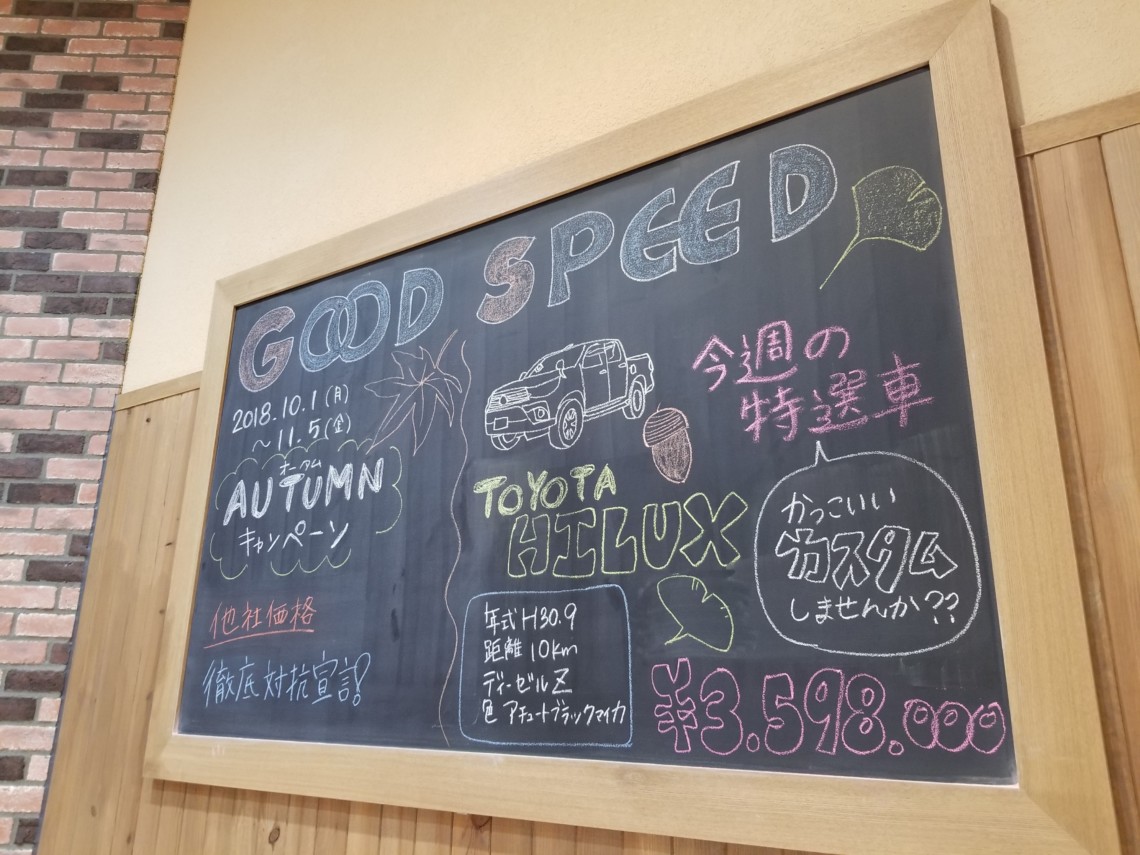 GOOD SPEED
2018.10.1(月)
～11.5(金)
オータム
AUTUMN
キャンペーン
他社価格
徹底対抗宣言!
今週の
特選車
TOYOTA
HILUX
かっこいい
カスタム
しませんか??
年式 H30.9
距離 10km
ディーゼル Z
色 アチュートブラックマイカ
¥3.598.000